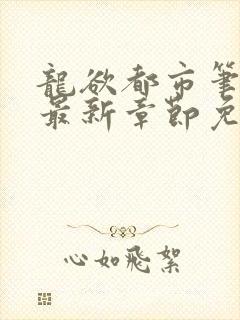 龍欲都市筆
最新章節免
心如飛絮